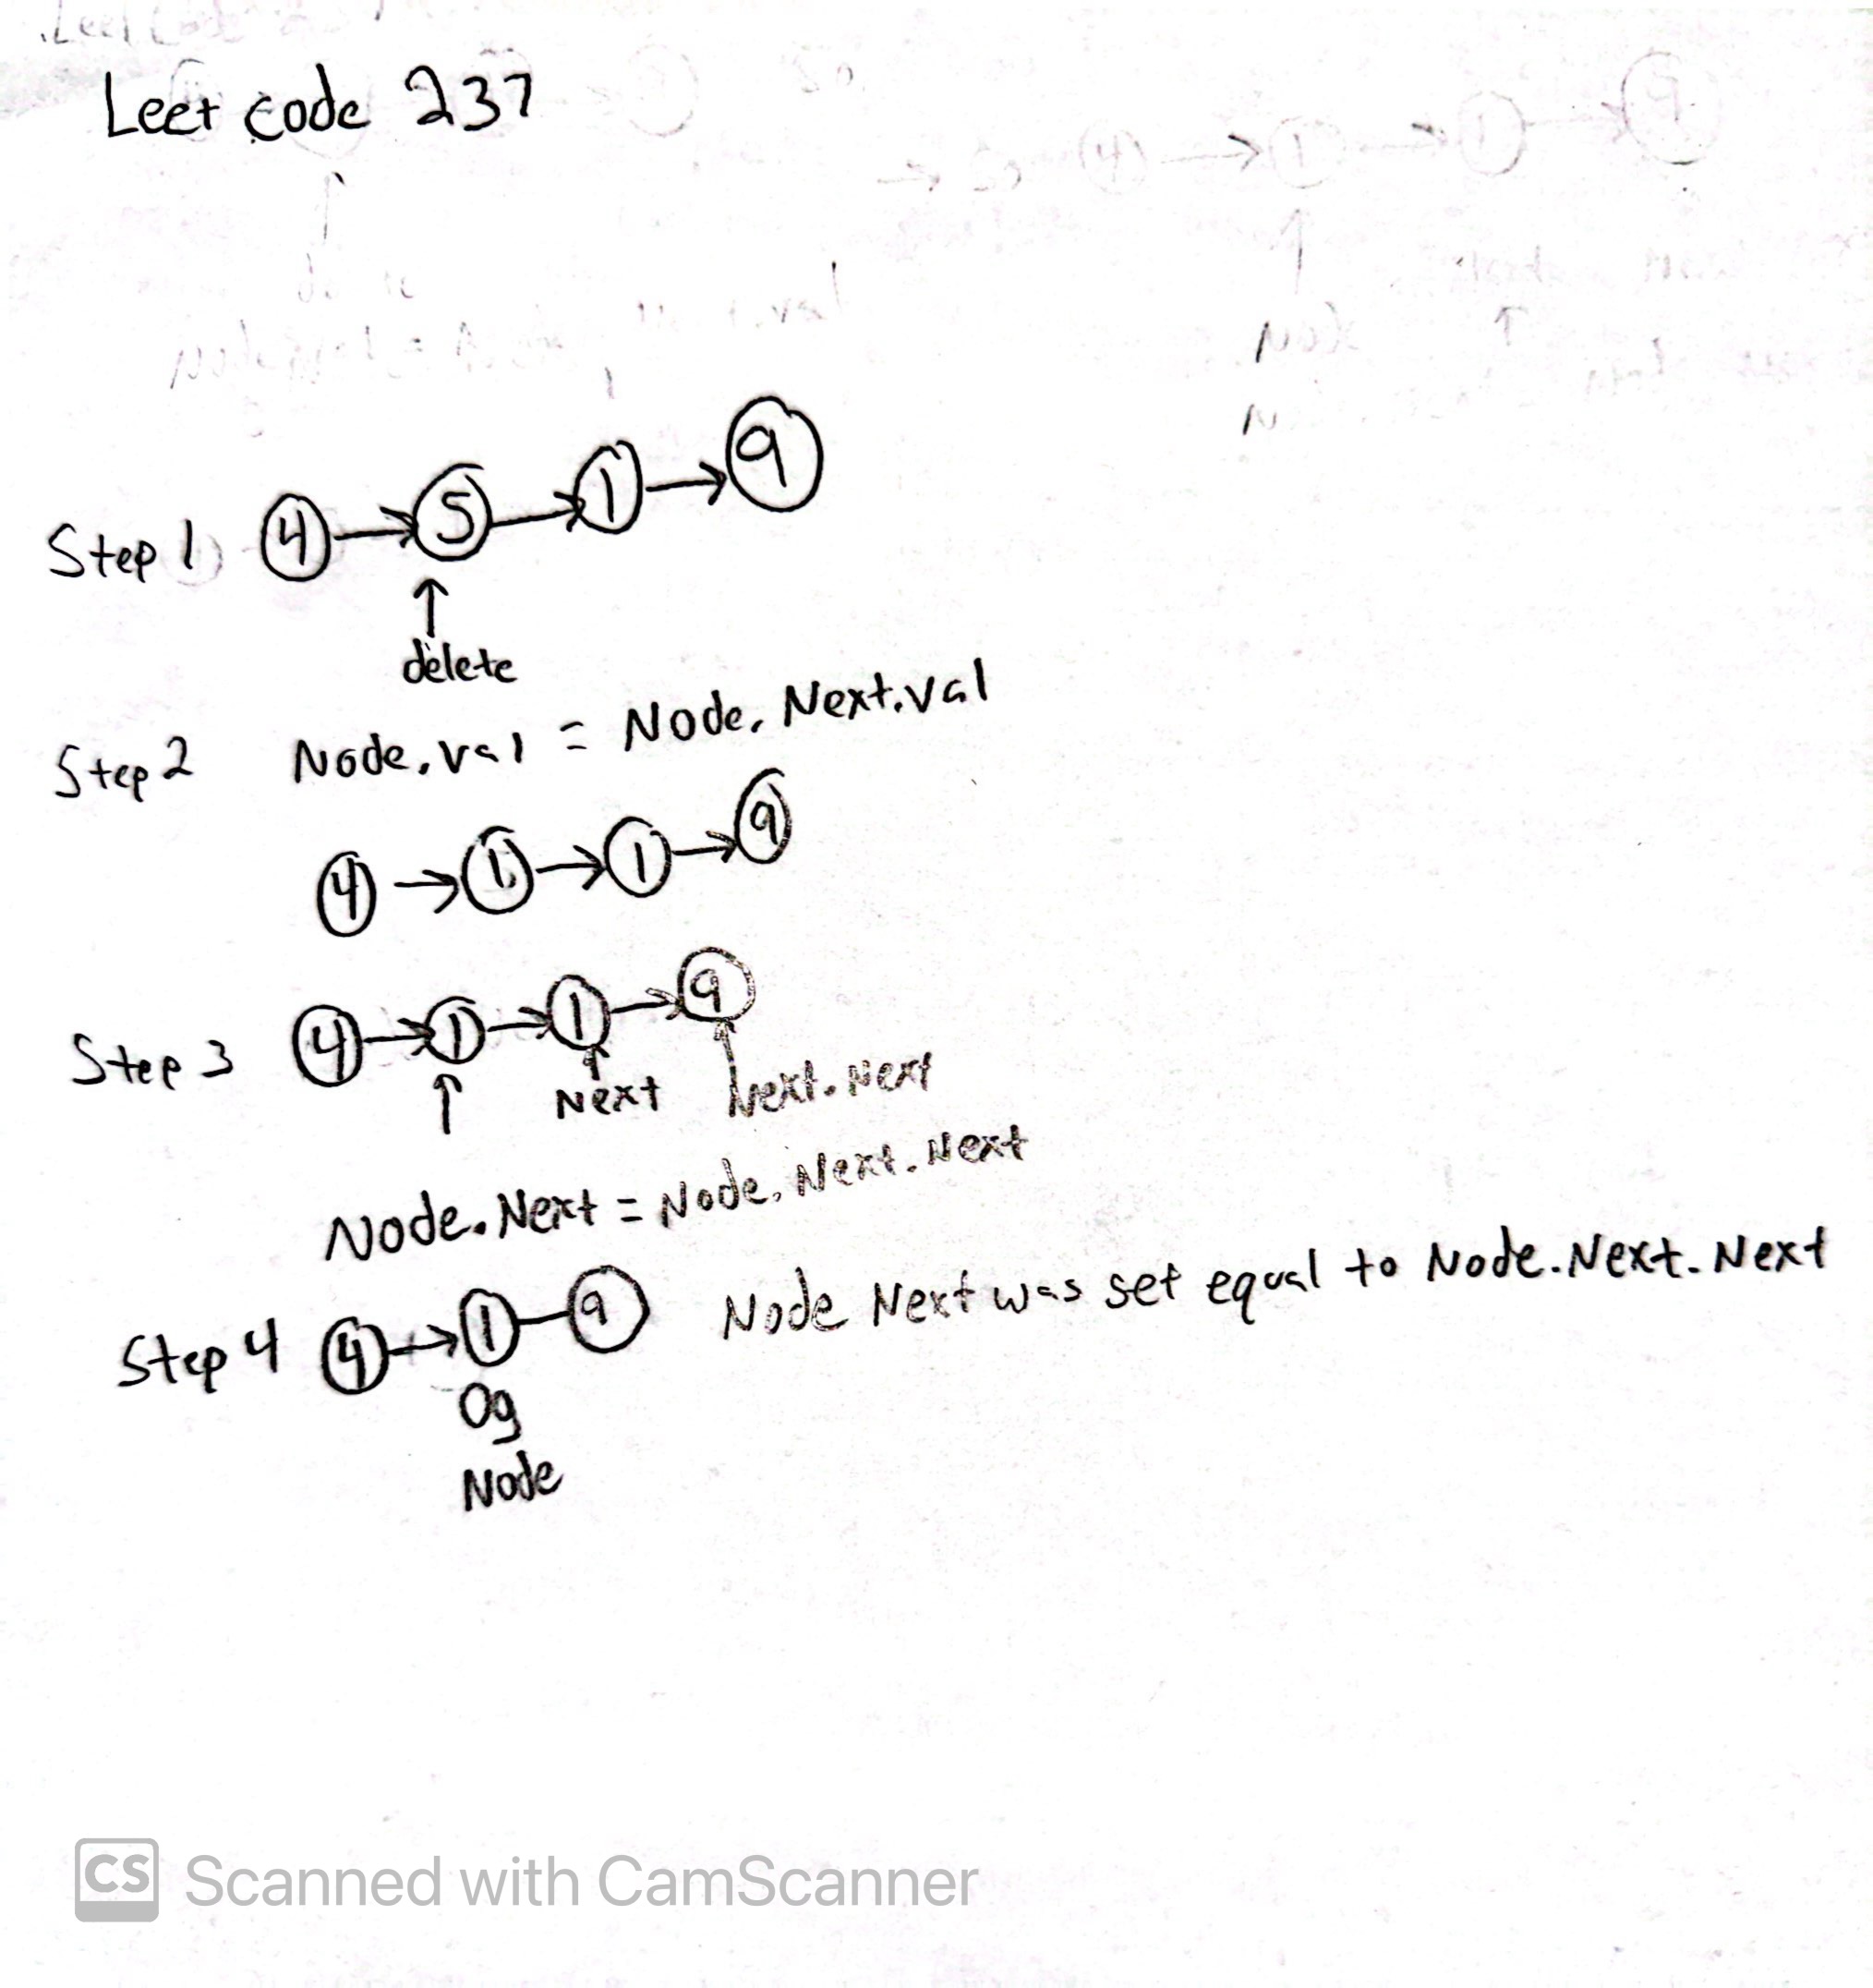 Leet code 237
Step 1 4 → 5 → 1 → 9
↑
delete
Step 2 Node.val = Node.Next.val
4 → 1 → 1 → 9
Step 3 4 → 1 → 1 → 9
↑ Next Next.Next
Node.Next = Node.Next.Next
Step 4 4 → 1 - 9 Node Next was set equal to Node.Next.Next
Og
Node
CS Scanned with CamScanner